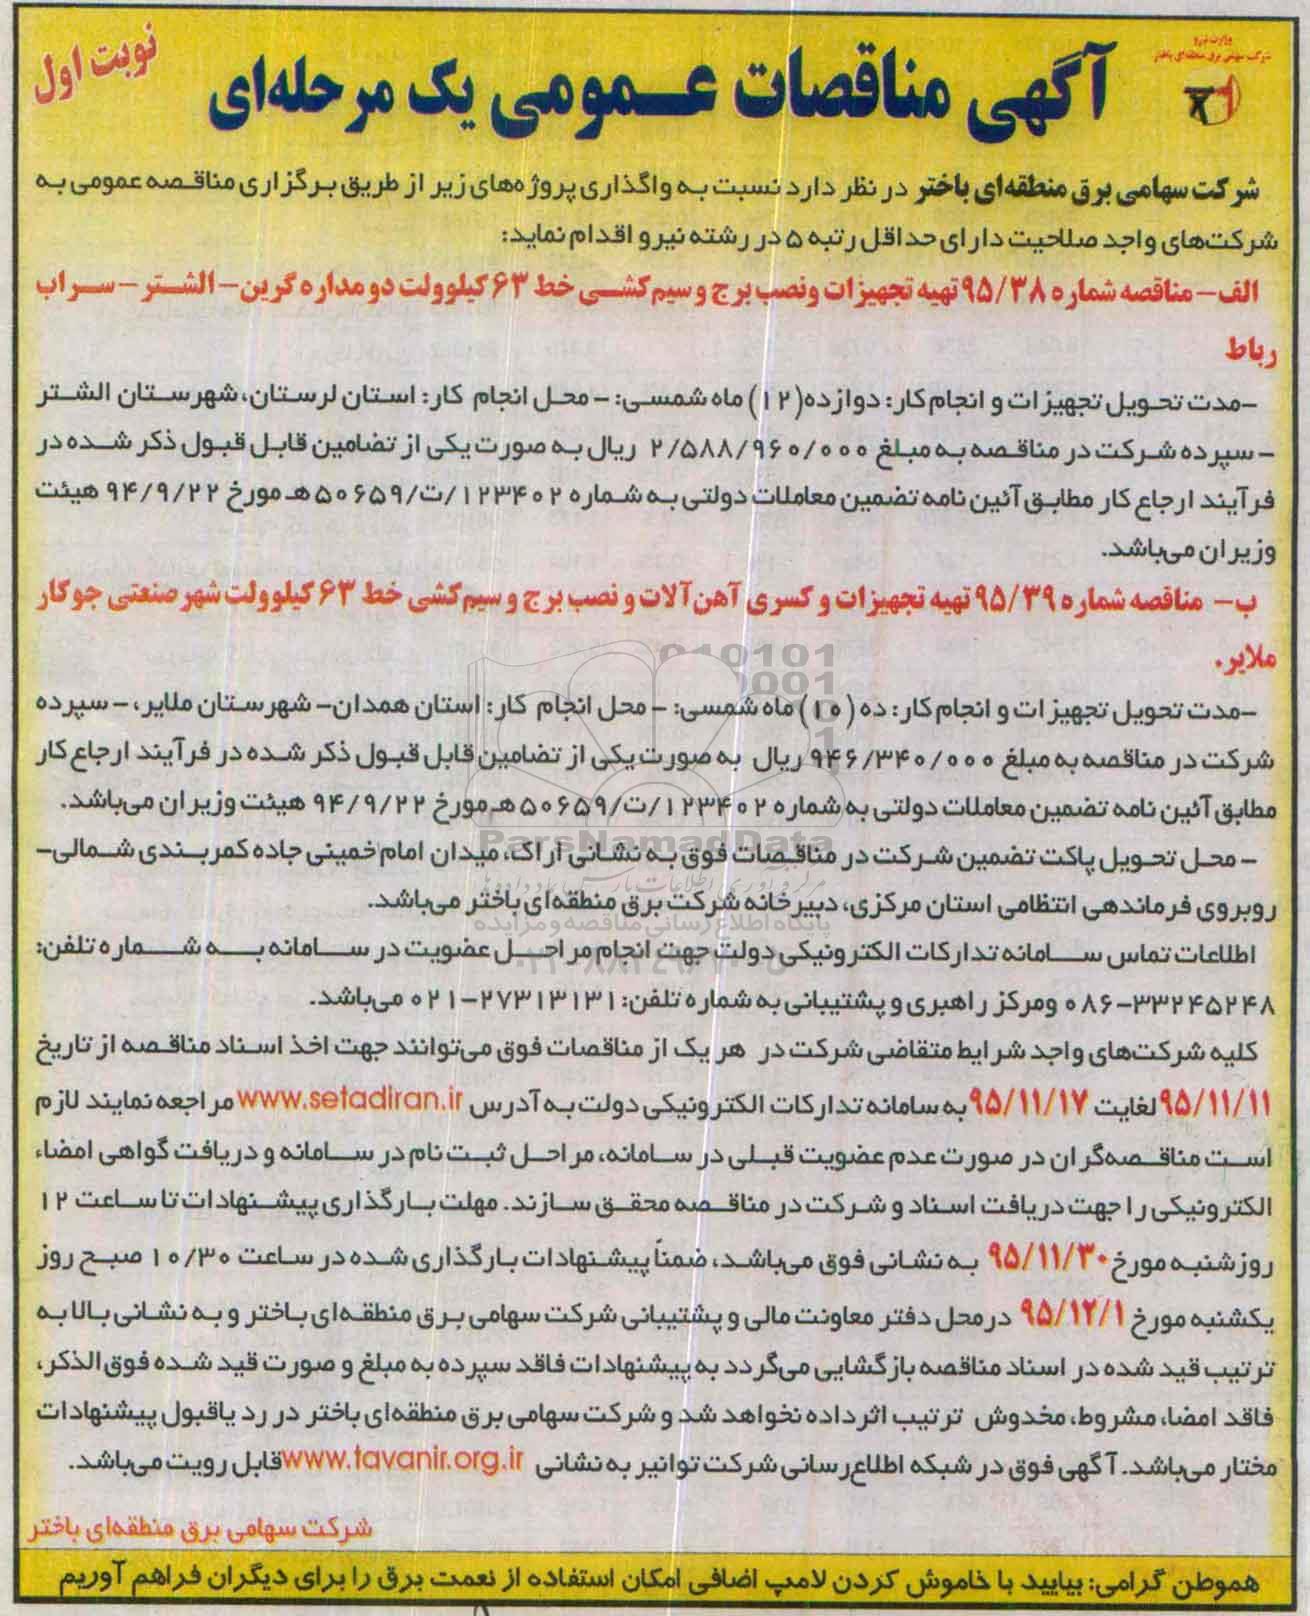 وزارت نیرو
شرکت سهامی برق منطقه‌ای باختر
نوبت اول
آگهی مناقصات عمومی یک مرحله‌ای
شرکت سهامی برق منطقه‌ای باختر در نظر دارد نسبت به واگذاری پروژه‌های زیر از طریق برگزاری مناقصه عمومی به
شرکت‌های واجد صلاحیت دارای حداقل رتبه ۵ در رشته نیرو اقدام نماید:
الف- مناقصه شماره ۹۵/۳۸ تهیه تجهیزات ونصب برج و سیم‌کشی خط ۶۳ کیلوولت دو مداره گرین- الشتر - سراب
رباط
-مدت تحویل تجهیزات و انجام کار: دوازده (۱۲) ماه شمسی: - محل انجام کار: استان لرستان، شهرستان الشتر
- سپرده شرکت در مناقصه به مبلغ ۲/۵۸۸/۹۶۰/۰۰۰ ریال به صورت یکی از تضامین قابل قبول ذکر شده در
فرآیند ارجاع کار مطابق آئین نامه تضمین معاملات دولتی به شماره ۱۲۳۴۰۲/ت/۵۰۶۵۹هـ مورخ ۹۴/۹/۲۲ هیئت
وزیران می‌باشد.
ب- مناقصه شماره ۹۵/۳۹ تهیه تجهیزات و کسری آهن‌آلات و نصب برج و سیم‌کشی خط ۶۳ کیلوولت شهر صنعتی جوکار
ملایر.
-مدت تحویل تجهیزات و انجام کار: ده (۱۰) ماه شمسی: - محل انجام کار: استان همدان- شهرستان ملایر، - سپرده
شرکت در مناقصه به مبلغ ۹۴۶/۳۴۰/۰۰۰ ریال به صورت یکی از تضامین قابل قبول ذکر شده در فرآیند ارجاع کار
مطابق آئین نامه تضمین معاملات دولتی به شماره ۱۲۳۴۰۲/ت/۵۰۶۵۹هـ مورخ ۹۴/۹/۲۲ هیئت وزیران می‌باشد.
- محل تحویل پاکت تضمین شرکت در مناقصات فوق به نشانی اراک، میدان امام خمینی جاده کمربندی شمالی-
روبروی فرماندهی انتظامی استان مرکزی، دبیرخانه شرکت برق منطقه‌ای باختر می‌باشد.
اطلاعات تماس سامانه تدارکات الکترونیکی دولت جهت انجام مراحل عضویت در سامانه به شماره تلفن:
۰۸۶-۳۳۲۴۵۲۴۸ ومرکز راهبری و پشتیبانی به شماره تلفن: ۰۲۱-۲۷۳۱۳۱۳۱ می‌باشد.
کلیه شرکت‌های واجد شرایط متقاضی شرکت در هر یک از مناقصات فوق می‌توانند جهت اخذ اسناد مناقصه از تاریخ
۹۵/۱۱/۱۱ لغایت ۹۵/۱۱/۱۷ به سامانه تدارکات الکترونیکی دولت به آدرس www.setadiran.ir مراجعه نمایند لازم
است مناقصه‌گران در صورت عدم عضویت قبلی در سامانه، مراحل ثبت نام در سامانه و دریافت گواهی امضاء
الکترونیکی را جهت دریافت اسناد و شرکت در مناقصه محقق سازند. مهلت بارگذاری پیشنهادات تا ساعت ۱۲
روز شنبه مورخ ۹۵/۱۱/۳۰ به نشانی فوق می‌باشد، ضمناً پیشنهادات بارگذاری شده در ساعت ۱۰/۳۰ صبح روز
یکشنبه مورخ ۹۵/۱۲/۱ در محل دفتر معاونت مالی و پشتیبانی شرکت سهامی برق منطقه‌ای باختر و به نشانی بالا به
ترتیب قید شده در اسناد مناقصه بازگشایی می‌گردد به پیشنهادات فاقد سپرده به مبلغ و صورت قید شده فوق الذکر،
فاقد امضا، مشروط، مخدوش ترتیب اثر داده نخواهد شد و شرکت سهامی برق منطقه‌ای باختر در رد یاقبول پیشنهادات
مختار می‌باشد. آگهی فوق در شبکه اطلاع‌رسانی شرکت توانیر به نشانی www.tavanir.org.ir قابل رویت می‌باشد.
شرکت سهامی برق منطقه‌ای باختر
هموطن گرامی: بیایید با خاموش کردن لامپ اضافی امکان استفاده از نعمت برق را برای دیگران فراهم آوریم
ParsNamadData
پایگاه اطلاع رسانی مناقصه و مزایده